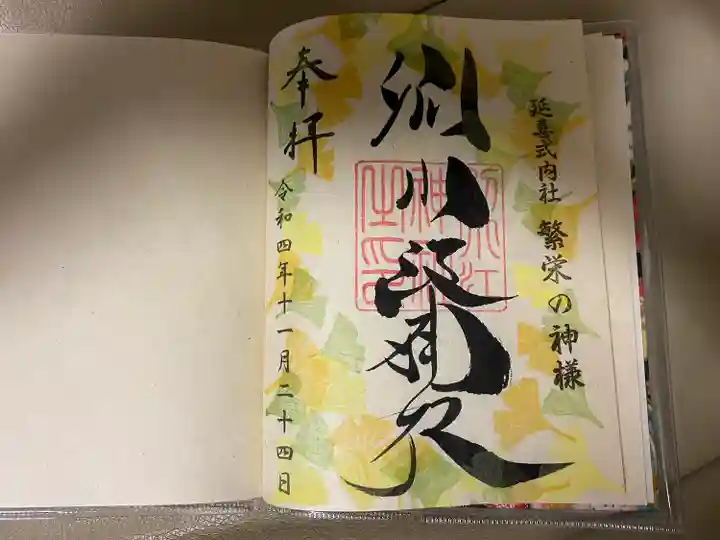 延喜式内社 繁栄の神様
別小江神社
奉拝
令和四年十一月二十四日